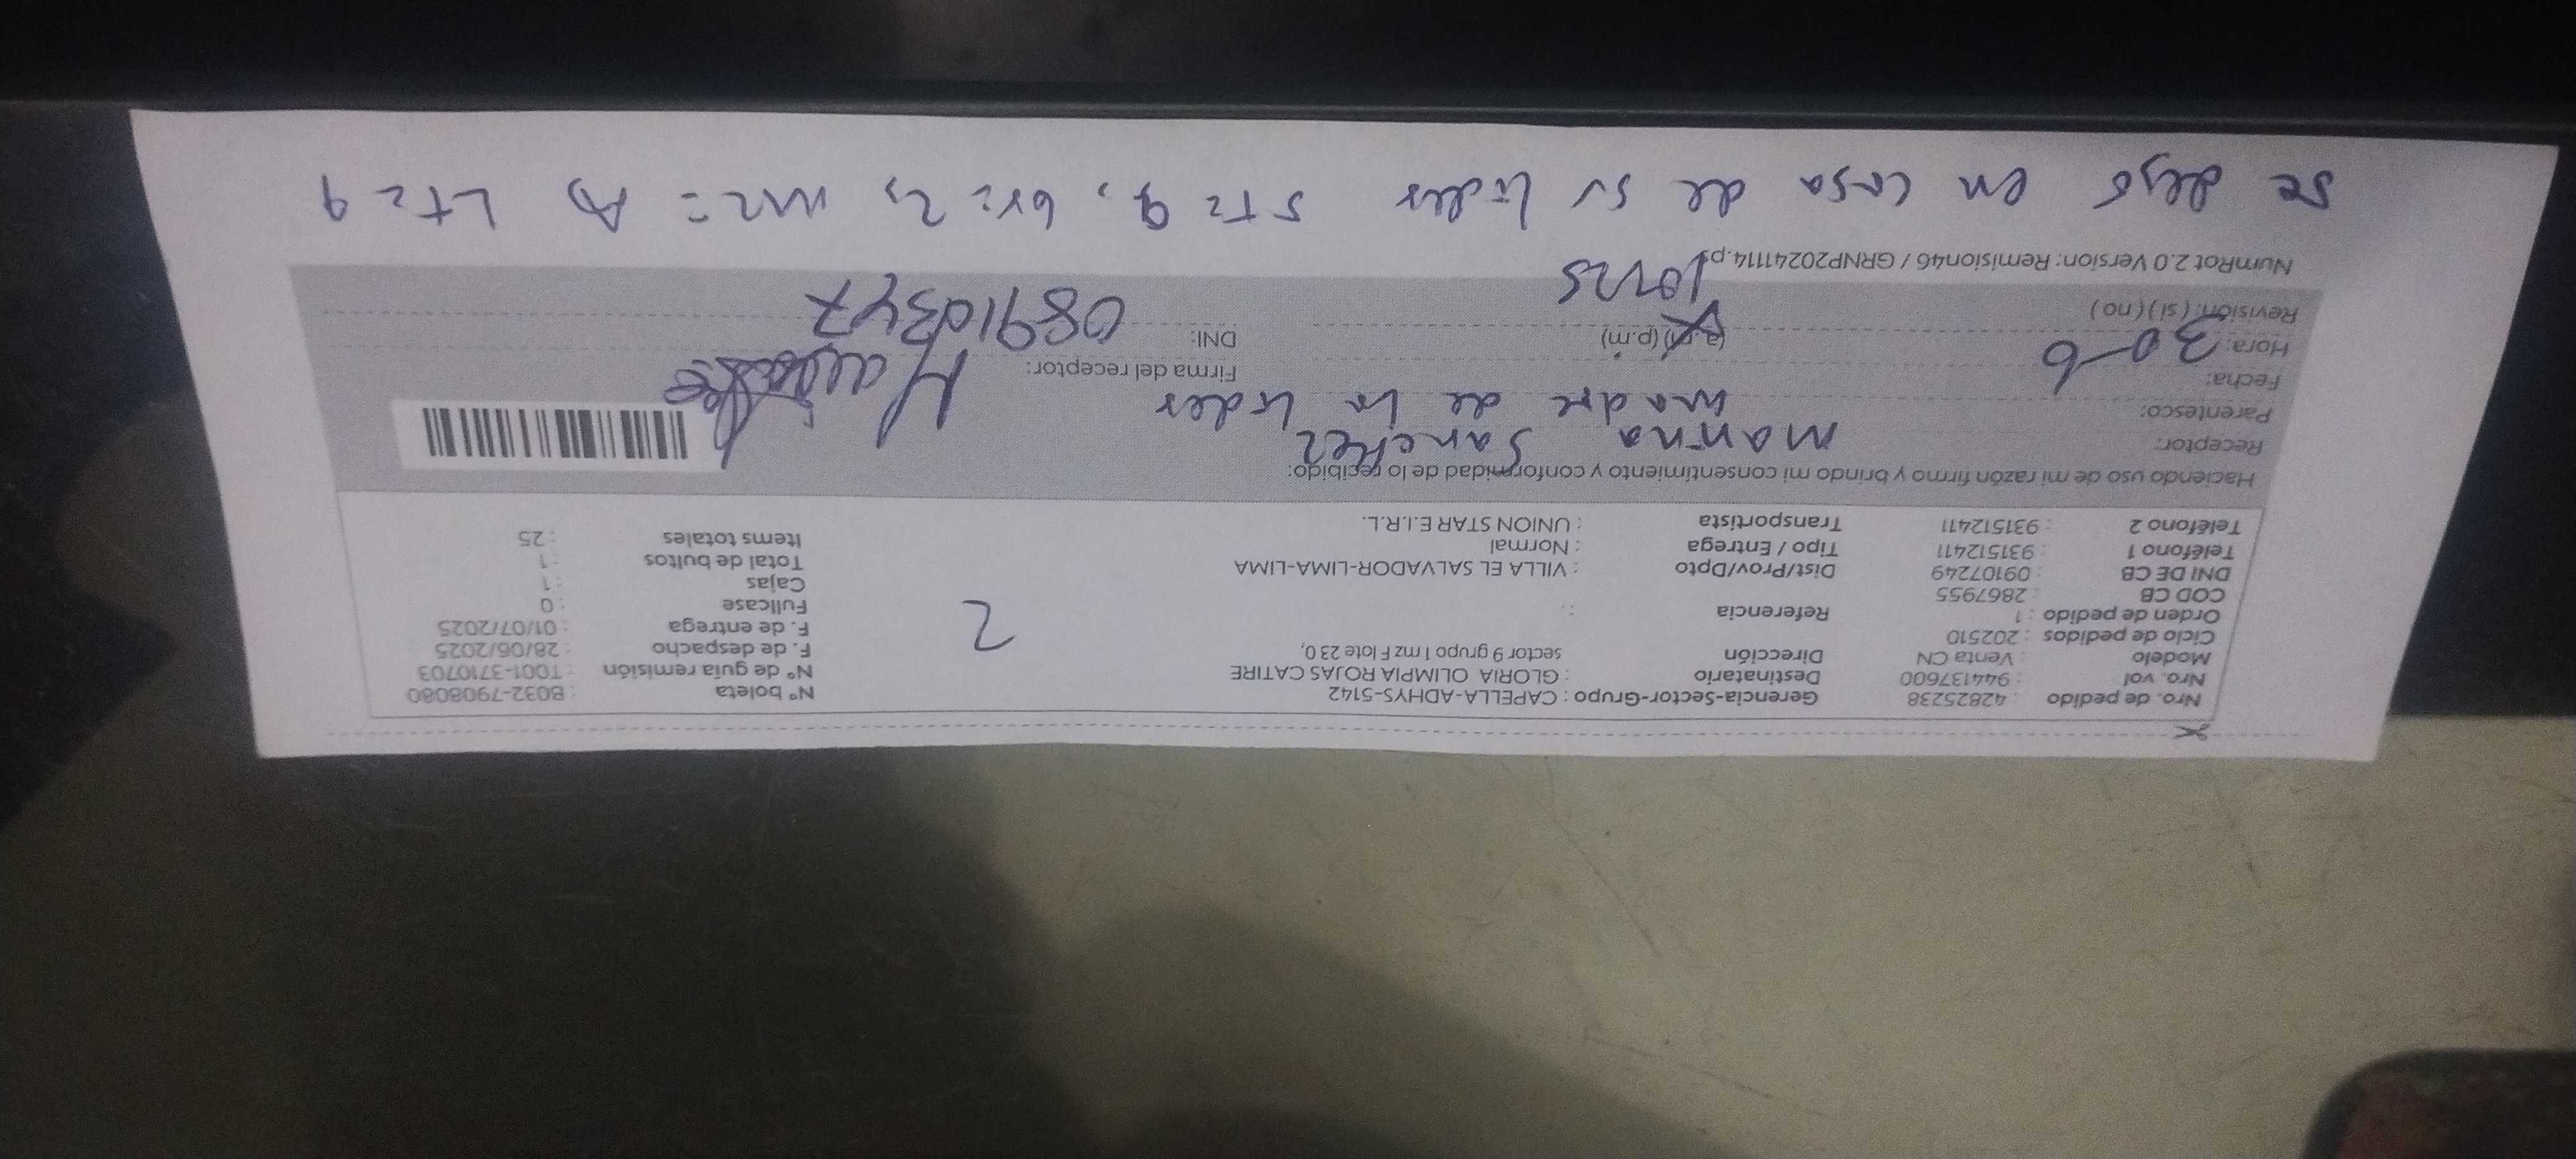 Nro. de pedido : 42825238 Gerencia-Sector-Grupo : CAPELLA-ADHYS-5142 N° boleta : B032-7908080
Nro. vol : 944137600 Destinatario : GLORIA OLIMPIA ROJAS CATIRE N° de guía remisión : T001-3710703
Modelo : Venta CN Dirección sector 9 grupo 1 mz F lote 23 0, F. de despacho : 28/06/2025
Ciclo de pedidos : 202510 F. de entrega : 01/07/2025
Orden de pedido : 1 Referencia : . 2 Fullcase : 0
COD CB : 2867955 Cajas : 1
DNI DE CB : 09107249 Dist/Prov/Dpto : VILLA EL SALVADOR-LIMA-LIMA Total de bultos : 1
Teléfono 1 : 931512411 Tipo / Entrega : Normal Items totales : 25
Teléfono 2 : 931512411 Transportista : UNION STAR E.I.R.L.
Haciendo uso de mi razón firmo y brindo mi consentimiento y conformidad de lo recibido:
Receptor: Marina Sanchez
Parentesco: madre de la lider
Fecha: 30-6 Firma del receptor:
Hora: (a.m) (p.m) DNI: 08910347
Revisión: (si) (no)
NumRot 2.0 Version: Remision46 / GRNP20241114.ps
se dejó en casa de su lider ST=9, Gr=2, mz= A LT=9